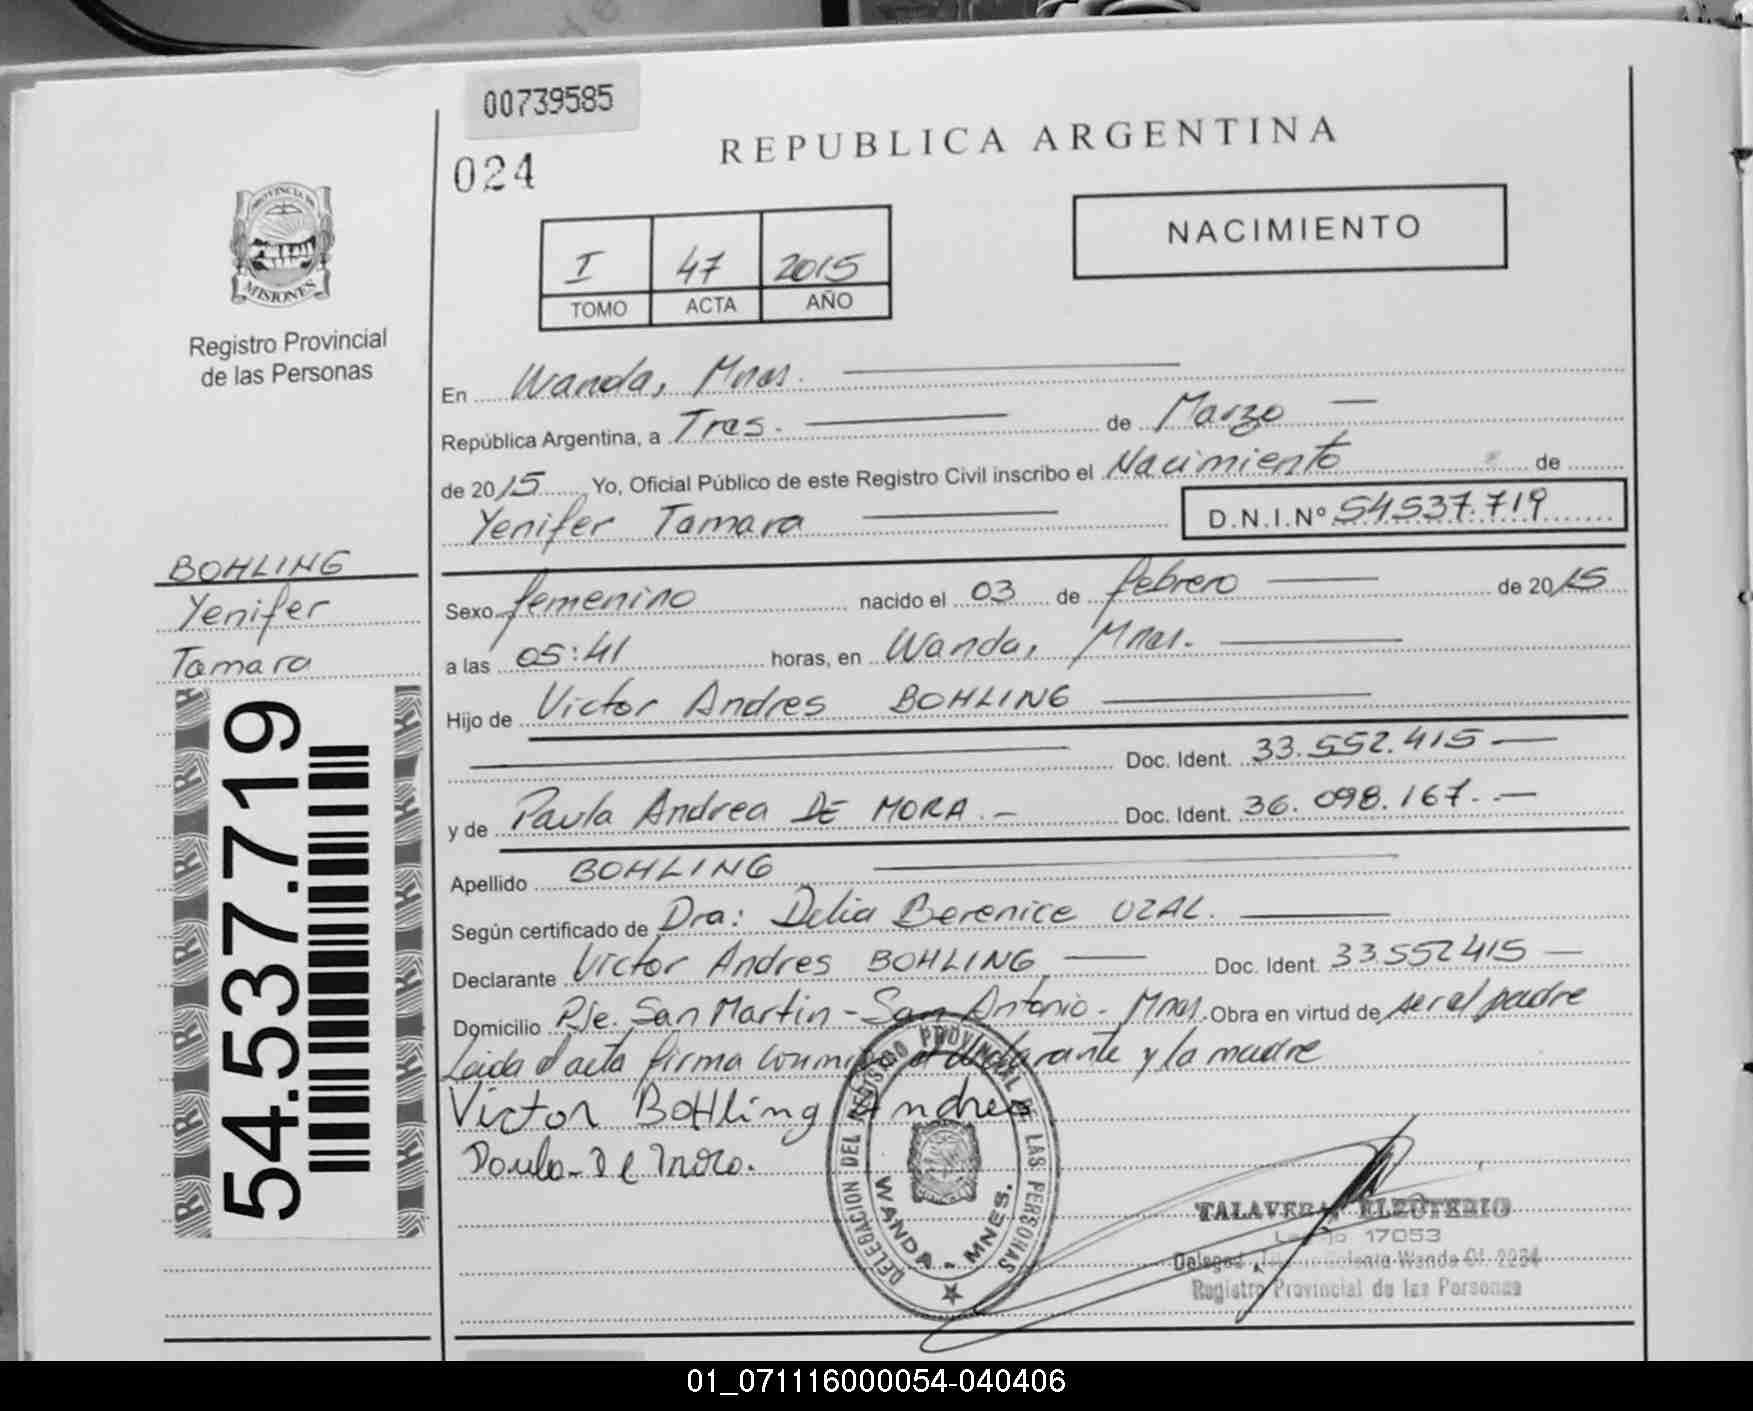 00739585
024
REPUBLICA ARGENTINA
NACIMIENTO
I 47 2015
TOMO ACTA AÑO
PROVINCIA DE
MISIONES
Registro Provincial
de las Personas
En Wanda, Mnes.
República Argentina, a Tres. de Marzo
de 2015 Yo, Oficial Público de este Registro Civil inscribo el Nacimiento de
Yenifer Tamara D.N.I.Nº 54.537.719
BOHLING
Yenifer
Tamara
54.537.719
Sexo femenino nacido el 03 de febrero de 2015
a las 05:41 horas, en Wanda, Mnes.
Hijo de Victor Andres BOHLING
Doc. Ident. 33.552.415
y de Paula Andrea DE MORA.- Doc. Ident. 36.098.167.-
Apellido BOHLING
Según certificado de Dra: Delia Berenice UZAL.
Declarante Victor Andres BOHLING Doc. Ident. 33.552415
Domicilio Pje. San Martin - San Antonio - Mnes. Obra en virtud de ser el padre
Leida el acta firma conmigo el declarante y la madre
Victor BoHling Andres
Paula De Mora.
DELEGACION DEL REGISTRO PROVINCIAL DE LAS PERSONAS
WANDA - MNES.
TALAVERA ELEUTERIO
17053
Colonia Wanda Of. 2234
Registro Provincial de las Personas
01_071116000054-040406